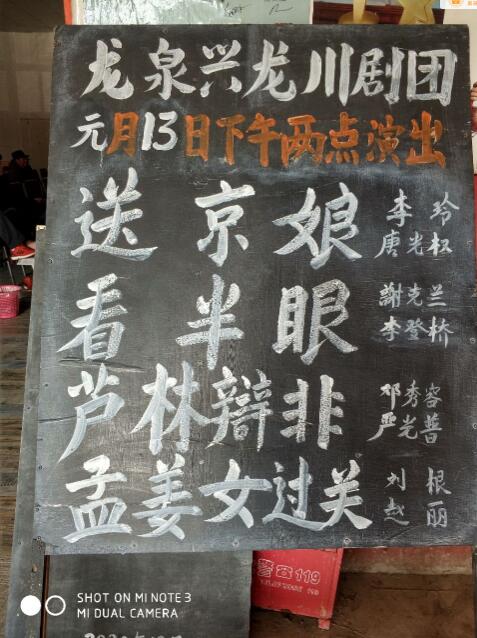 龙泉兴龙川剧团
元月13日下午两点演出
送京娘
李玲
唐光权
看半眼
謝克兰
李登桥
芦林辩非
邓秀容
严光普
孟姜女过关
刘根
赵丽
警192119
SHOT ON MI NOTE 3
MI DUAL CAMERA